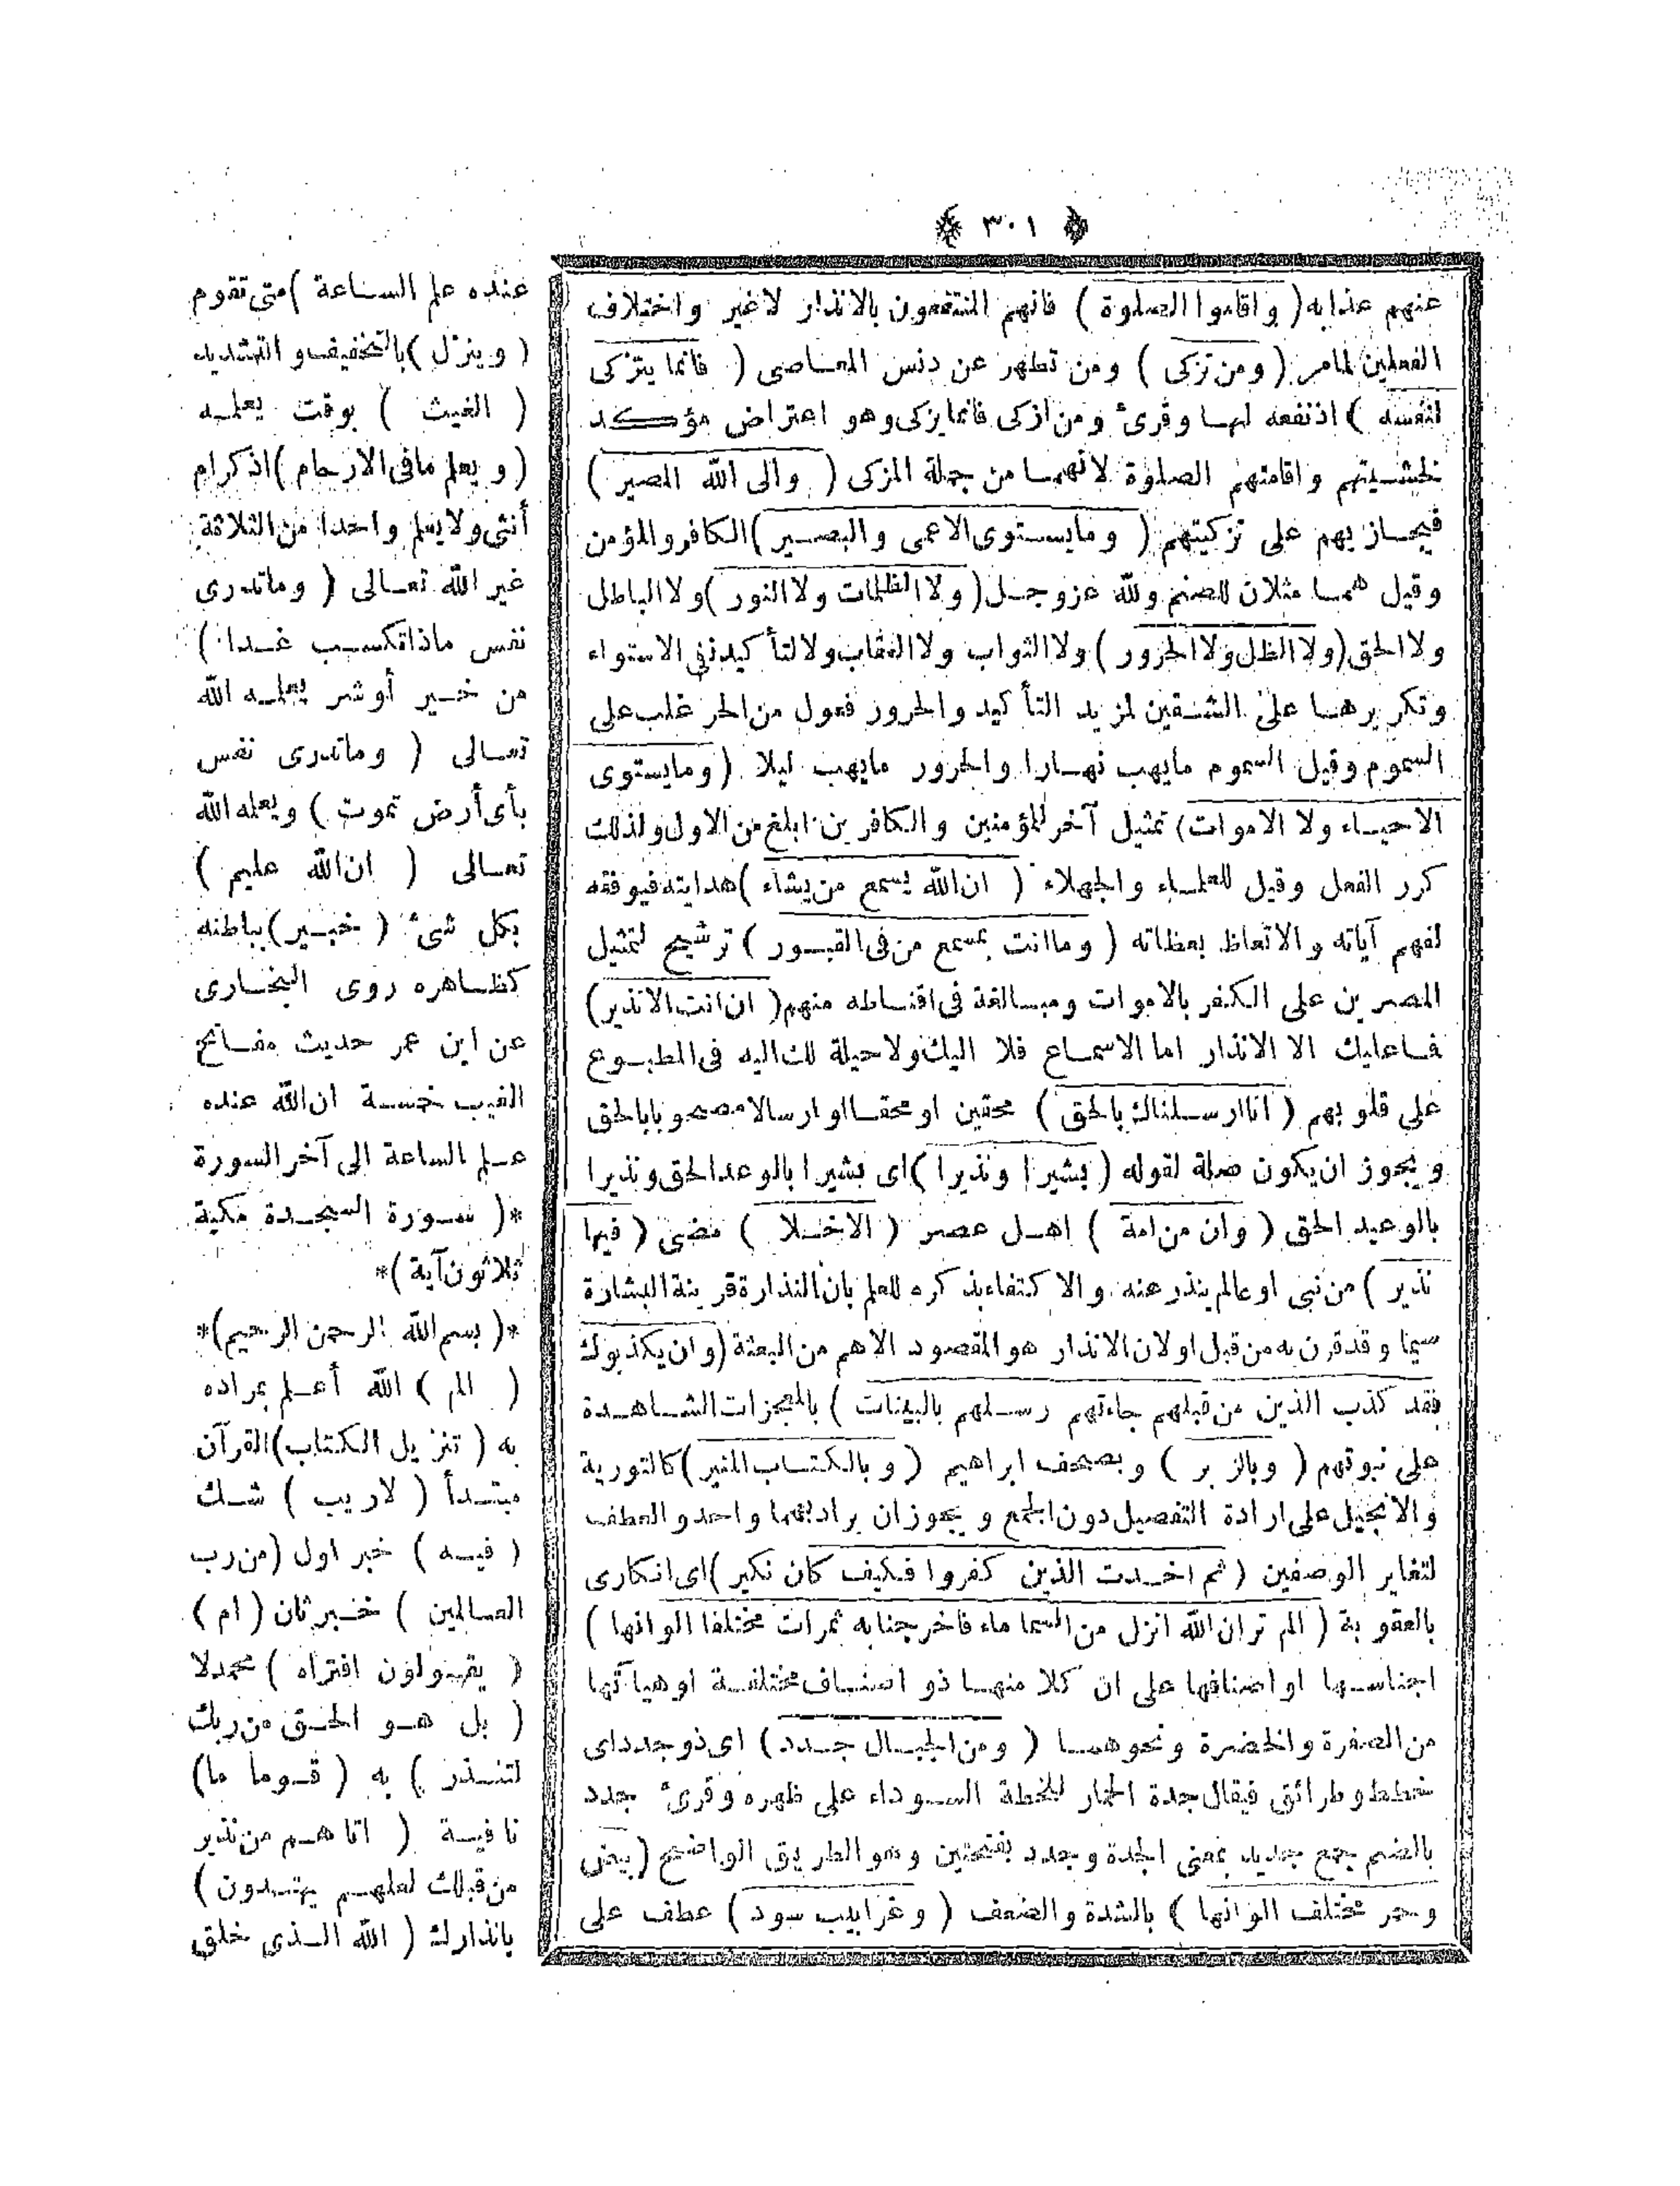 ﴿ ٣٠١ ﴾
عنهم عذابه ( واقاموا الصلوة ) فانهم المنتفعون بالانذار لاغير واختلاف
الفعلين لمامر ( ومن تزكى ) ومن تطهر عن دنس المعاصى ( فانما يتزكى
لنفسه ) اذنفعه لها وقرئ ومن ازكى فانما يزكى وهو اعتراض مؤكد
لخشيتهم واقامتهم الصلوة لانهما من جملة المزكى ( والى الله المصير )
فيجازيهم على تزكيتهم ( ومايستوى الاعمى والبصير ) الكافر والمؤمن
وقيل هما مثلان للصنم ولله عزوجل ( ولا الظلمات ولا النور ) ولا الباطل
ولا الحق ( ولا الظل ولا الحرور ) ولا الثواب ولا العقاب ولا لتأكيد نفى الاستواء
وتكريرها على الشقين لمزيد التأكيد والحرور فعول من الحر غلب على
السموم وقيل السموم مايهب نهارا والحرور مايهب ليلا ( ومايستوى
الاحياء ولا الاموات ) تمثيل آخر للمؤمنين والكافرين ابلغ من الاول ولذلك
كرر الفعل وقيل للعلماء والجهلاء ( ان الله يسمع من يشاء ) هدايته فيوفقه
لفهم آياته والاتعاظ بعظاته ( وما انت بمسمع من فى القبور ) ترشيح لتمثيل
المصرين على الكفر بالاموات ومبالغة فى اقناطه منهم ( ان انت الا نذير )
فاعليك الا الانذار اما الاسماع فلا اليك ولا حيلة لك اليه فى المطبوع
على قلوبهم ( انا ارسلناك بالحق ) محقين او محقا او ارسالا مصحوبا بالحق
ويجوز ان يكون صلة لقوله ( بشيرا ونذيرا ) اى بشيرا بالوعد الحق ونذيرا
بالوعيد الحق ( وان من امة ) اهل عصر ( الاخلا ) مضى ( فيها
نذير ) من نبى او عالم ينذر عنه والاكتفاء بذكره للعلم بان النذارة قرينة البشارة
سيما وقدقرن به من قبل اولان الانذار هو المقصود الاهم من البعثة ( وان يكذبوك
فقد كذب الذين من قبلهم جاءتهم رسلهم بالبينات ) بالمعجزات الشاهدة
على نبوتهم ( وبالزبر ) وبصحف ابراهيم ( وبالكتاب المنير ) كالتورية
والانجيل على ارادة التفصيل دون الجمع ويجوز ان يراد بهما واحد والعطف
لتغاير الوصفين ( ثم اخذت الذين كفروا فكيف كان نكير ) اى انكارى
بالعقوبة ( الم تر ان الله انزل من السما ماء فاخرجنا به ثمرات مختلفا الوانها )
اجناسها او اصنافها على ان كلا منها ذو اصناف مختلفة او هيآتها
من الصفرة والخضرة ونحوهما ( ومن الجبال جدد ) اى ذو جدد اى
خطط وطرائق فيقال جدة الحمار للخطة السوداء على ظهره وقرئ جدد
بالضم جمع جديد بمعنى الجدة وجدد بفتحتين وهو الطريق الواضح ( بيض
وحمر مختلف الوانها ) بالشدة والضعف ( وغرابيب سود ) عطف على
عنده علم الساعة ) متى تقوم
( وينزل ) بالتخفيف والتشديد
( الغيث ) بوقت يعلمه
( ويعلم مافى الارحام ) اذكر ام
أنثى ولايعلم واحدا من الثلاثة
غير الله تعالى ( وماتدرى
نفس ماذا تكسب غدا )
من خير أو شر يعلمه الله
تعالى ( وماتدرى نفس
بأى أرض تموت ) ويعلمه الله
تعالى ( ان الله عليم )
بكل شئ ( خبير ) بباطنه
كظاهره روى البخارى
عن ابن عمر حديث مفاتح
الغيب خمسة ان الله عنده
علم الساعة الى آخر السورة
*( سورة السجدة مكية
ثلاثون آية )*
*( بسم الله الرحمن الرحيم )*
( الم ) الله أعلم بمراده
به ( تنزيل الكتاب ) القرآن
مبتدأ ( لاريب ) شك
( فيه ) خبر اول ( من رب
العالمين ) خبر ثان ( ام )
( يقولون افتراه ) محمد لا
( بل هو الحق من ربك
لتنذر ) به ( قوما ما )
نافية ( اتاهم من نذير
من قبلك لعلهم يهتدون )
بانذارك ( الله الذى خلق